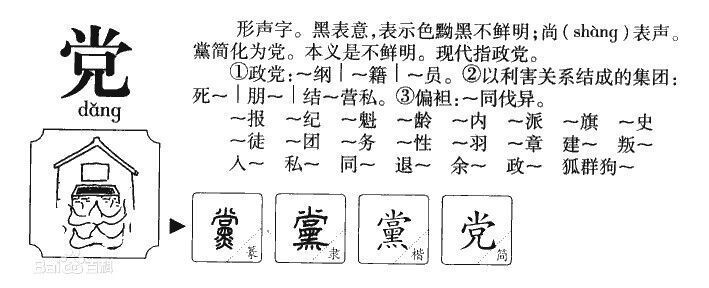 党
dǎng
形声字。黑表意,表示色黝黑不鲜明;尚(shàng)表声。
黨简化为党。本义是不鲜明。现代指政党。
①政党:～纲|～籍|～员。②以利害关系结成的集团:
死～|朋～|结～营私。③偏袒:～同伐异。
～报 ～纪 ～魁 ～龄 ～内 ～派 ～旗 ～史
～徒 ～团 ～务 ～性 ～羽 ～章 建～ 叛～
人～ 私～ 同～ 退～ 余～ 政～ 狐群狗～
黨 篆 黨 隶 黨 楷 党 简
Bai百科